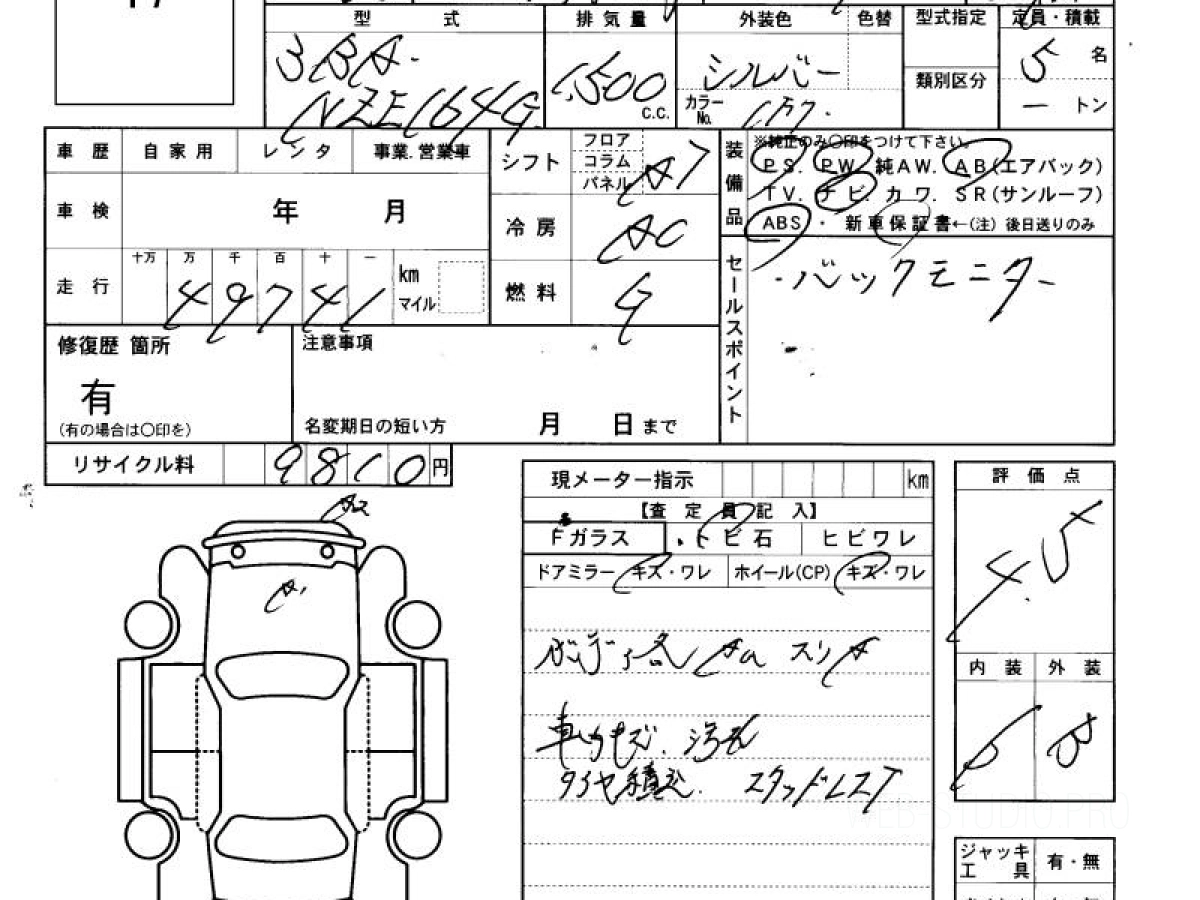 型式 排気量 外装色 色替 型式指定 定員・積載
3BA-
NZE164G
1,500 C.C.
シルバー
カラーNo. 1F7.
類別区分
5 名
ー トン
車歴 自家用 レンタ 事業.営業車
シフト フロア コラム パネル AT
装備品 ※純正のみ○印をつけて下さい。
PS. PW. 純AW. AB(エアバック)
TV. ナビ. カワ. SR(サンルーフ)
ABS ・ 新車保証書←(注) 後日送りのみ
車検 年 月
冷房 AC
走行 十万 万 千 百 十 一
49741 km マイル
燃料 G
セールスポイント
・バックモニター
修復歴 箇所
有
(有の場合は○印を)
注意事項
名変期日の短い方 月 日まで
リサイクル料 9810円
A2
A1
現メーター指示 km
【査定員記入】
Fガラス ・トビ石 ヒビワレ
ドアミラー キズ・ワレ ホイール(CP) キズ・ワレ
スリキ
車内キズ、汚れ
タイヤ積込. スタッドレス
評価点
4.5
内装 外装
B B
ジャッキ工具 有・無
WEB-STUDIO.PRO